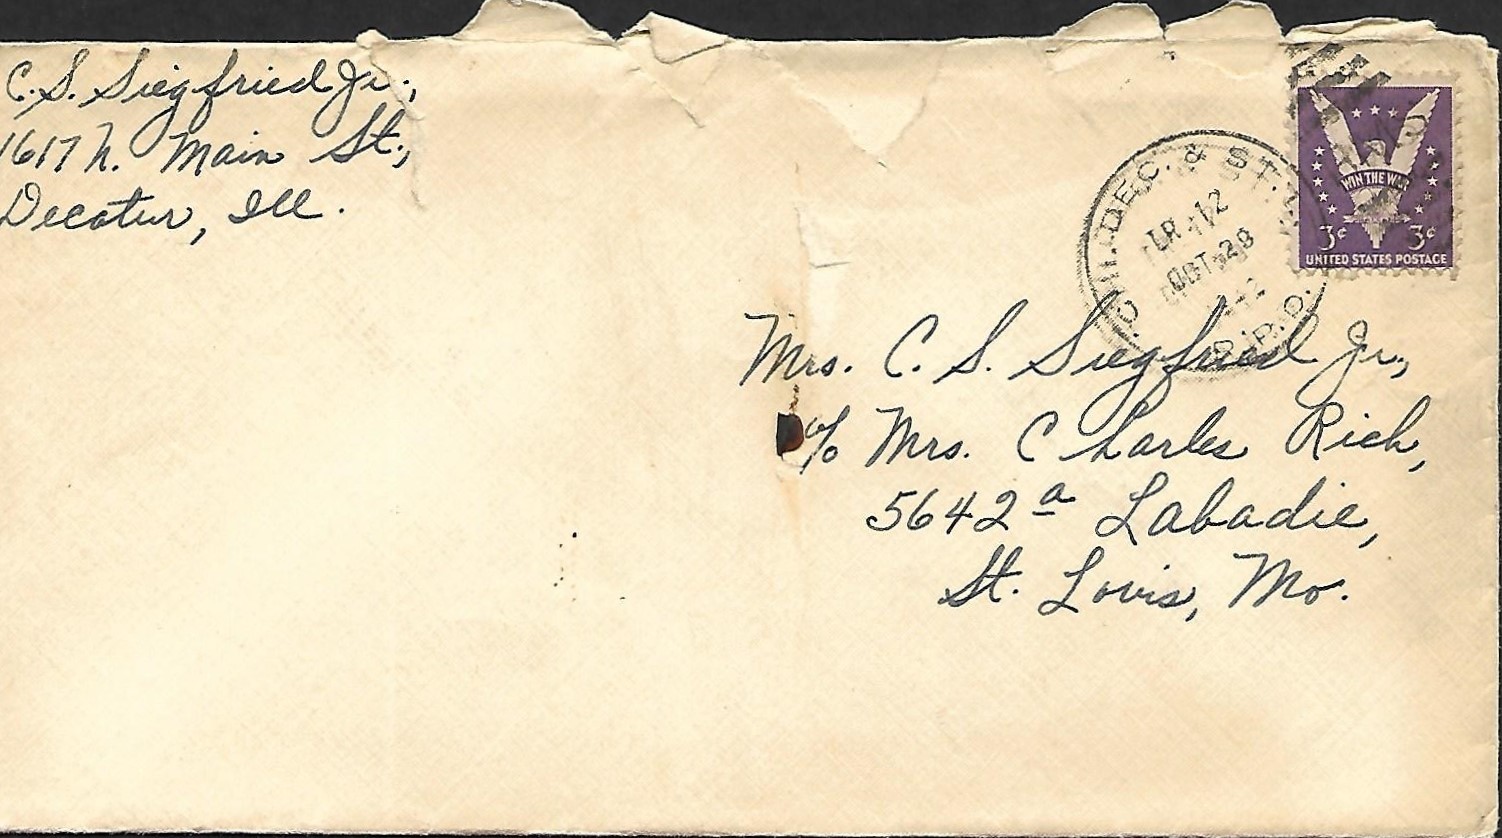 C. S. Siegfried Jr.,
1617 N. Main St.,
Decatur, Ill.
CHI. DEC. & ST. L.
TR. 12
OCT 28
R.P.O.
WIN THE WAR
3¢ 3¢
UNITED STATES POSTAGE
Mrs. C. S. Siegfried Jr,
c/o Mrs. Charles Rich,
5642 a Labadie,
St. Louis, Mo.